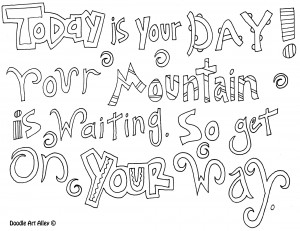 Today is Your DAY!
Your Mountain
is Waiting. So get
On YOUR Way.
Doodle Art Alley ©